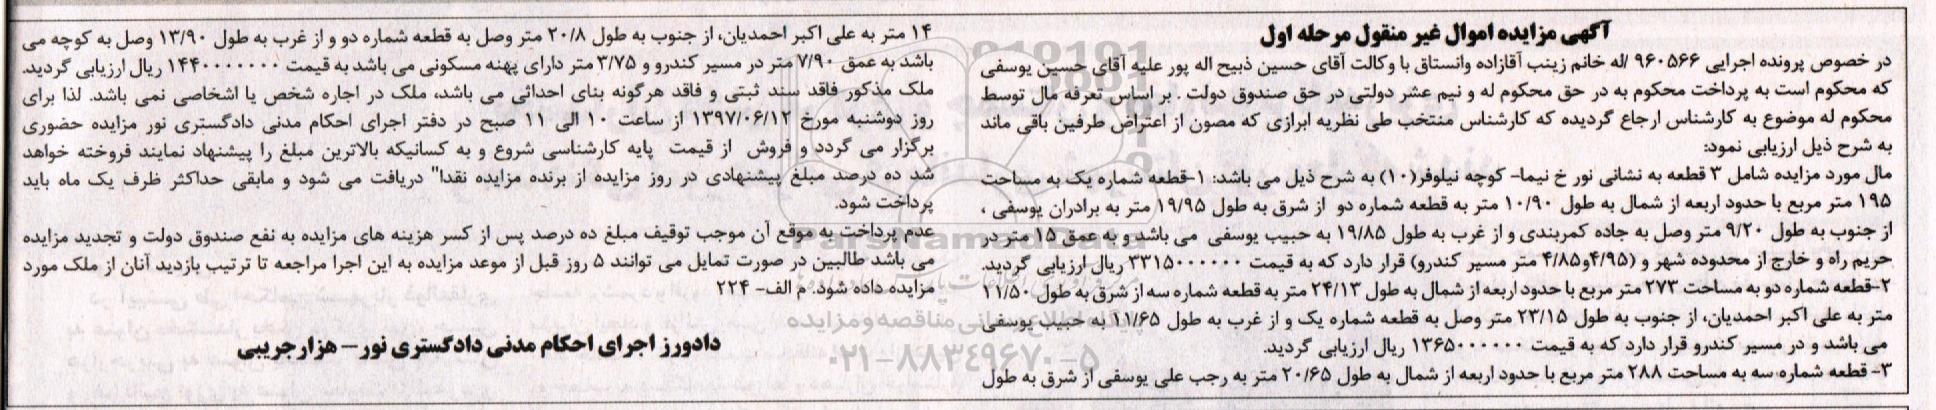 آگهی مزایده اموال غیر منقول مرحله اول
در خصوص پرونده اجرایی ۹۶۰۵۶۶ /له خانم زینب آقازاده وانستاق با وکالت آقای حسین ذبیح اله پور علیه آقای حسین یوسفی
که محکوم است به پرداخت محکوم به در حق محکوم له و نیم عشر دولتی در حق صندوق دولت . بر اساس تعرفه مال توسط
محکوم له موضوع به کارشناس ارجاع گردیده که کارشناس منتخب طی نظریه ابرازی که مصون از اعتراض طرفین باقی ماند
به شرح ذیل ارزیابی نمود:
مال مورد مزایده شامل ۳ قطعه به نشانی نور خ نیما- کوچه نیلوفر(۱۰) به شرح ذیل می باشد: ۱-قطعه شماره یک به مساحت
۱۹۵ متر مربع با حدود اربعه از شمال به طول ۱۰/۹۰ متر به قطعه شماره دو از شرق به طول ۱۹/۹۵ متر به برادران یوسفی ،
از جنوب به طول ۹/۲۰ متر وصل به جاده کمربندی و از غرب به طول ۱۹/۸۵ به حبیب یوسفی می باشد و به عمق ۱۵ متر در
حریم راه و خارج از محدوده شهر و (۴/۹۵و۴/۸۵ متر مسیر کندرو) قرار دارد که به قیمت ۳۳۱۵۰۰۰۰۰۰ ریال ارزیابی گردید.
۲-قطعه شماره دو به مساحت ۲۷۳ متر مربع با حدود اربعه از شمال به طول ۲۴/۱۳ متر به قطعه شماره سه از شرق به طول ۱۱/۵۰
متر به علی اکبر احمدیان، از جنوب به طول ۲۳/۱۵ متر وصل به قطعه شماره یک و از غرب به طول ۱۱/۶۵ به حبیب یوسفی
می باشد و در مسیر کندرو قرار دارد که به قیمت ۱۳۶۵۰۰۰۰۰۰ ریال ارزیابی گردید.
۳- قطعه شماره سه به مساحت ۲۸۸ متر مربع با حدود اربعه از شمال به طول ۲۰/۶۵ متر به رجب علی یوسفی از شرق به طول
۱۴ متر به علی اکبر احمدیان، از جنوب به طول ۲۰/۸ متر وصل به قطعه شماره دو و از غرب به طول ۱۳/۹۰ وصل به کوچه می
باشد به عمق ۷/۹۰ متر در مسیر کندرو و ۳/۷۵ متر دارای پهنه مسکونی می باشد به قیمت ۱۴۴۰۰۰۰۰۰۰ ریال ارزیابی گردید.
ملک مذکور فاقد سند ثبتی و فاقد هرگونه بنای احداثی می باشد، ملک در اجاره شخص یا اشخاصی نمی باشد. لذا برای
روز دوشنبه مورخ ۱۳۹۷/۰۶/۱۲ از ساعت ۱۰ الی ۱۱ صبح در دفتر اجرای احکام مدنی دادگستری نور مزایده حضوری
برگزار می گردد و فروش از قیمت پایه کارشناسی شروع و به کسانیکه بالاترین مبلغ را پیشنهاد نمایند فروخته خواهد
شد ده درصد مبلغ پیشنهادی در روز مزایده از برنده مزایده نقدا" دریافت می شود و مابقی حداکثر ظرف یک ماه باید
پرداخت شود.
عدم پرداخت به موقع آن موجب توقیف مبلغ ده درصد پس از کسر هزینه های مزایده به نفع صندوق دولت و تجدید مزایده
می باشد طالبین در صورت تمایل می توانند ۵ روز قبل از موعد مزایده به این اجرا مراجعه تا ترتیب بازدید آنان از ملک مورد
مزایده داده شود. م الف- ۲۲۴
دادورز اجرای احکام مدنی دادگستری نور- هزارجریبی
ParsNamadData
پایگاه اطلاع رسانی مناقصه و مزایده
۰۲۱-۸۸۳۴۹۶۷۰-۵